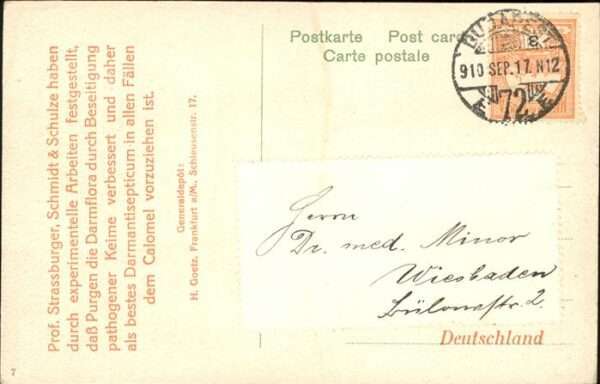 Postkarte Post card
Carte postale
BUDAPEST
910 SEP.17.N12
72
Prof. Strassburger, Schmidt & Schulze haben
durch experimentelle Arbeiten festgestellt,
daß Purgen die Darmflora durch Beseitigung
pathogener Keime verbessert und daher
als bestes Darmantisepticum in allen Fällen
dem Calomel vorzuziehen ist.
Generaldepôt:
H. Goetz, Frankfurt a/M., Schleusenstr. 17.
Herrn
Dr. med. Minor
Wiesbaden
Bülowstr. 2.
Deutschland
7